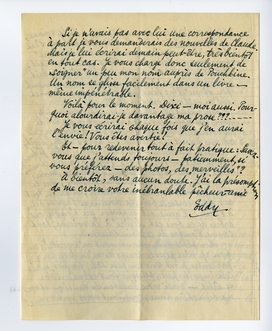 Si je n'avais pas avec lui une correspondance
à part je vous demanderais des nouvelles de Claude.
Mais je lui écrirai demain peut-être, très bientôt
en tout cas. Je vous charge donc seulement de
soigner un peu mon nom auprès de
Un nom se glisse facilement dans un livre —
même impénétrable.
Voilà pour le moment. Dixi — moi aussi. Pour-
quoi alourdirai-je davantage ma prose???
Je vous écrirai chaque fois que j'en aurai
l'envie! Vous êtes averti!
Et — pour redevenir tout à fait pratique:
vous que j'attends toujours — patiemment, si
vous préférez — des photos, des merveilles??
A bientôt, sans aucun doute. J'ai la présomption
de me croire votre inébranlable pêcheur-amie
Eddy